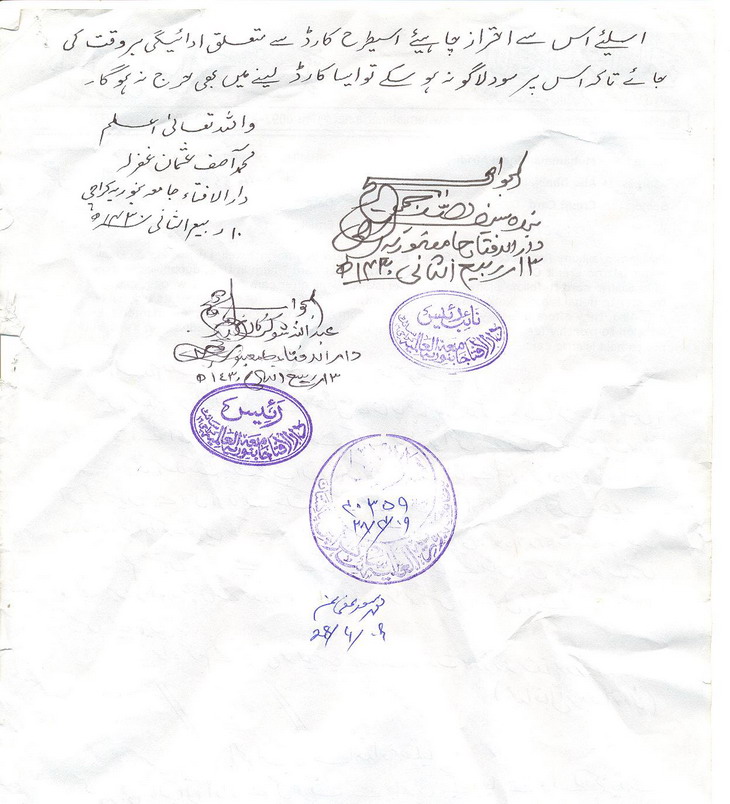 اسلئے اس سے احتراز چاہیئے اسیطرح کارڈ سے متعلق ادائیگی بروقت کی
جائے تاکہ اس پر سود لاگو نہ ہو سکے تو ایسا کارڈ لینے میں بھی حرج نہ ہوگا۔
واللہ تعالیٰ اعلم
محمد آصف عثمان غفرلہ
دارالافتاء جامعہ بنوریہ کراچی
۱۰ ربیع الثانی ۱۴۳۰ھ
الجواب
بندہ
دارالافتاء جامعہ بنوریہ
۱۳ ربیع الثانی ۱۴۳۰ھ
نائب رئیس
دارالافتاء جامعۃ البنوریہ العالمیہ
الجواب
عبداللہ شوکت
دارالافتاء جامعہ بنوریہ
۱۳ ربیع الثانی ۱۴۳۰ھ
رئیس
دارالافتاء جامعۃ البنوریہ العالمیہ
۲۰۳۵۹
۲۸/۴/۰۹